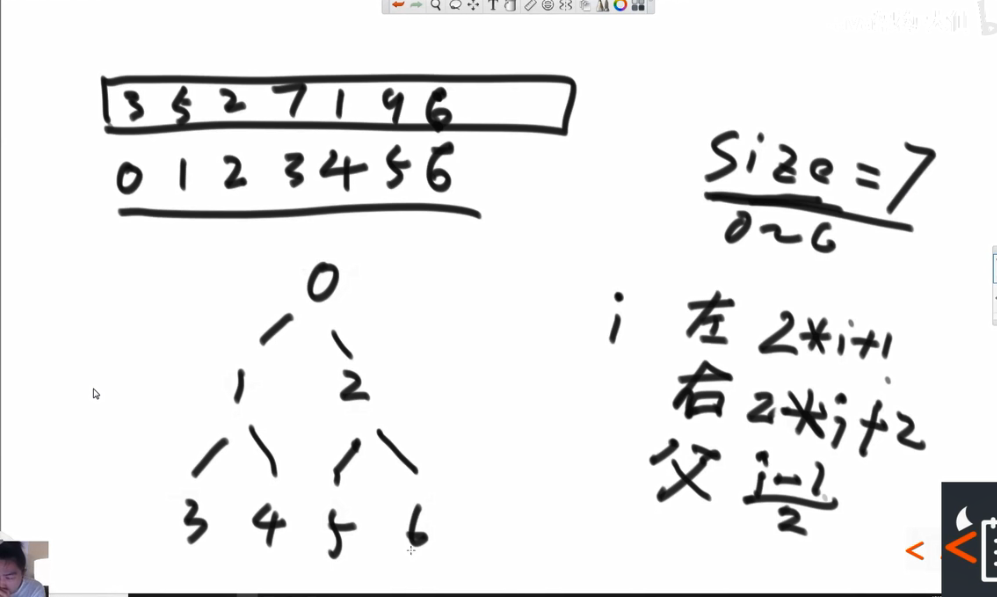 3 5 2 7 1 9 6
0 1 2 3 4 5 6
size=7
0~6
0
1 2
3 4 5 6
i 左 2*i+1
右 2*i+2
父 i-1
2